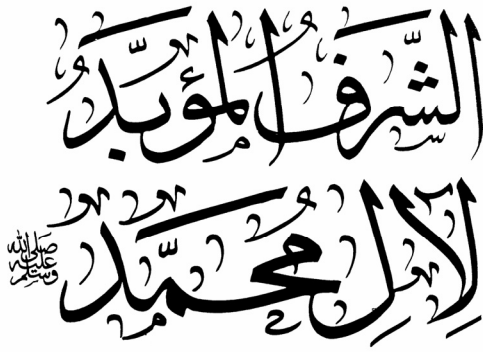 الشَّرَفُ المُؤَبَّدُ
لِآلِ مُحَمَّدٍ صلى الله عليه وسلم